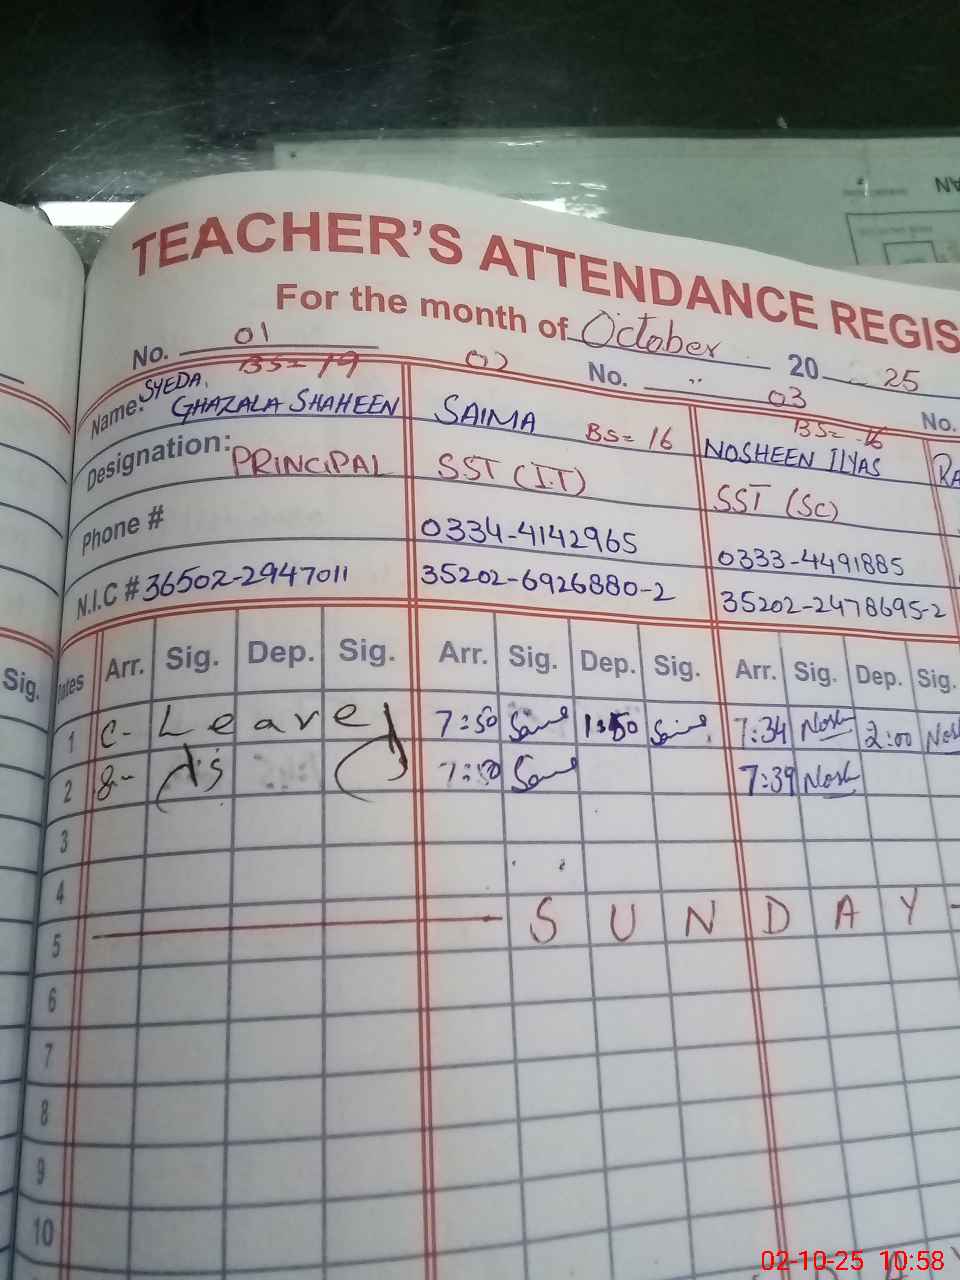 TEACHER'S ATTENDANCE REGIS
For the month of October 20 25
No. 01 02 No. 03 No.
BS=19
Name: SYEDA, GHAZALA SHAHEEN
SAIMA BS=16
BS=16
NOSHEEN ILYAS
RA
Designation: PRINCIPAL SST (I.T) SST (SC)
Phone # 0334-4142965 0333-4491885
N.I.C # 36502-2947011 35202-6926880-2 35202-2478695-2
Sig. Dates Arr. Sig. Dep. Sig. Arr. Sig. Dep. Sig. Arr. Sig. Dep. Sig.
1 C- Leave 7:50 1:50 7:34 Nosh 2:00 Nosh
2 7:39 Nosh
3
4
5 SUNDAY
6
7
8
9
10
02-10-25 10:58